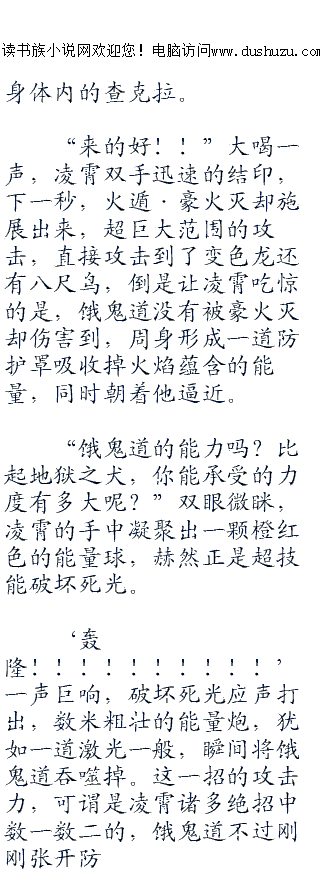 读书族小说网欢迎您！电脑访问www.dushuzu.com
身体内的查克拉。
“来的好！！”大喝一
声，凌霄双手迅速的结印，
下一秒，火遁·豪火灭却施
展出来，超巨大范围的攻
击，直接攻击到了变色龙还
有八尺鸟，倒是让凌霄吃惊
的是，饿鬼道没有被豪火灭
却伤害到，周身形成一道防
护罩吸收掉火焰蕴含的能
量，同时朝着他逼近。
“饿鬼道的能力吗？比
起地狱之犬，你能承受的力
度有多大呢？”双眼微眯，
凌霄的手中凝聚出一颗橙红
色的能量球，赫然正是超技
能破坏死光。
‘轰
隆！！！！！！！！！！’
一声巨响，破坏死光应声打
出，数米粗壮的能量炮，犹
如一道激光一般，瞬间将饿
鬼道吞噬掉。这一招的攻击
力，可谓是凌霄诸多绝招中
数一数二的，饿鬼道不过刚
刚张开防